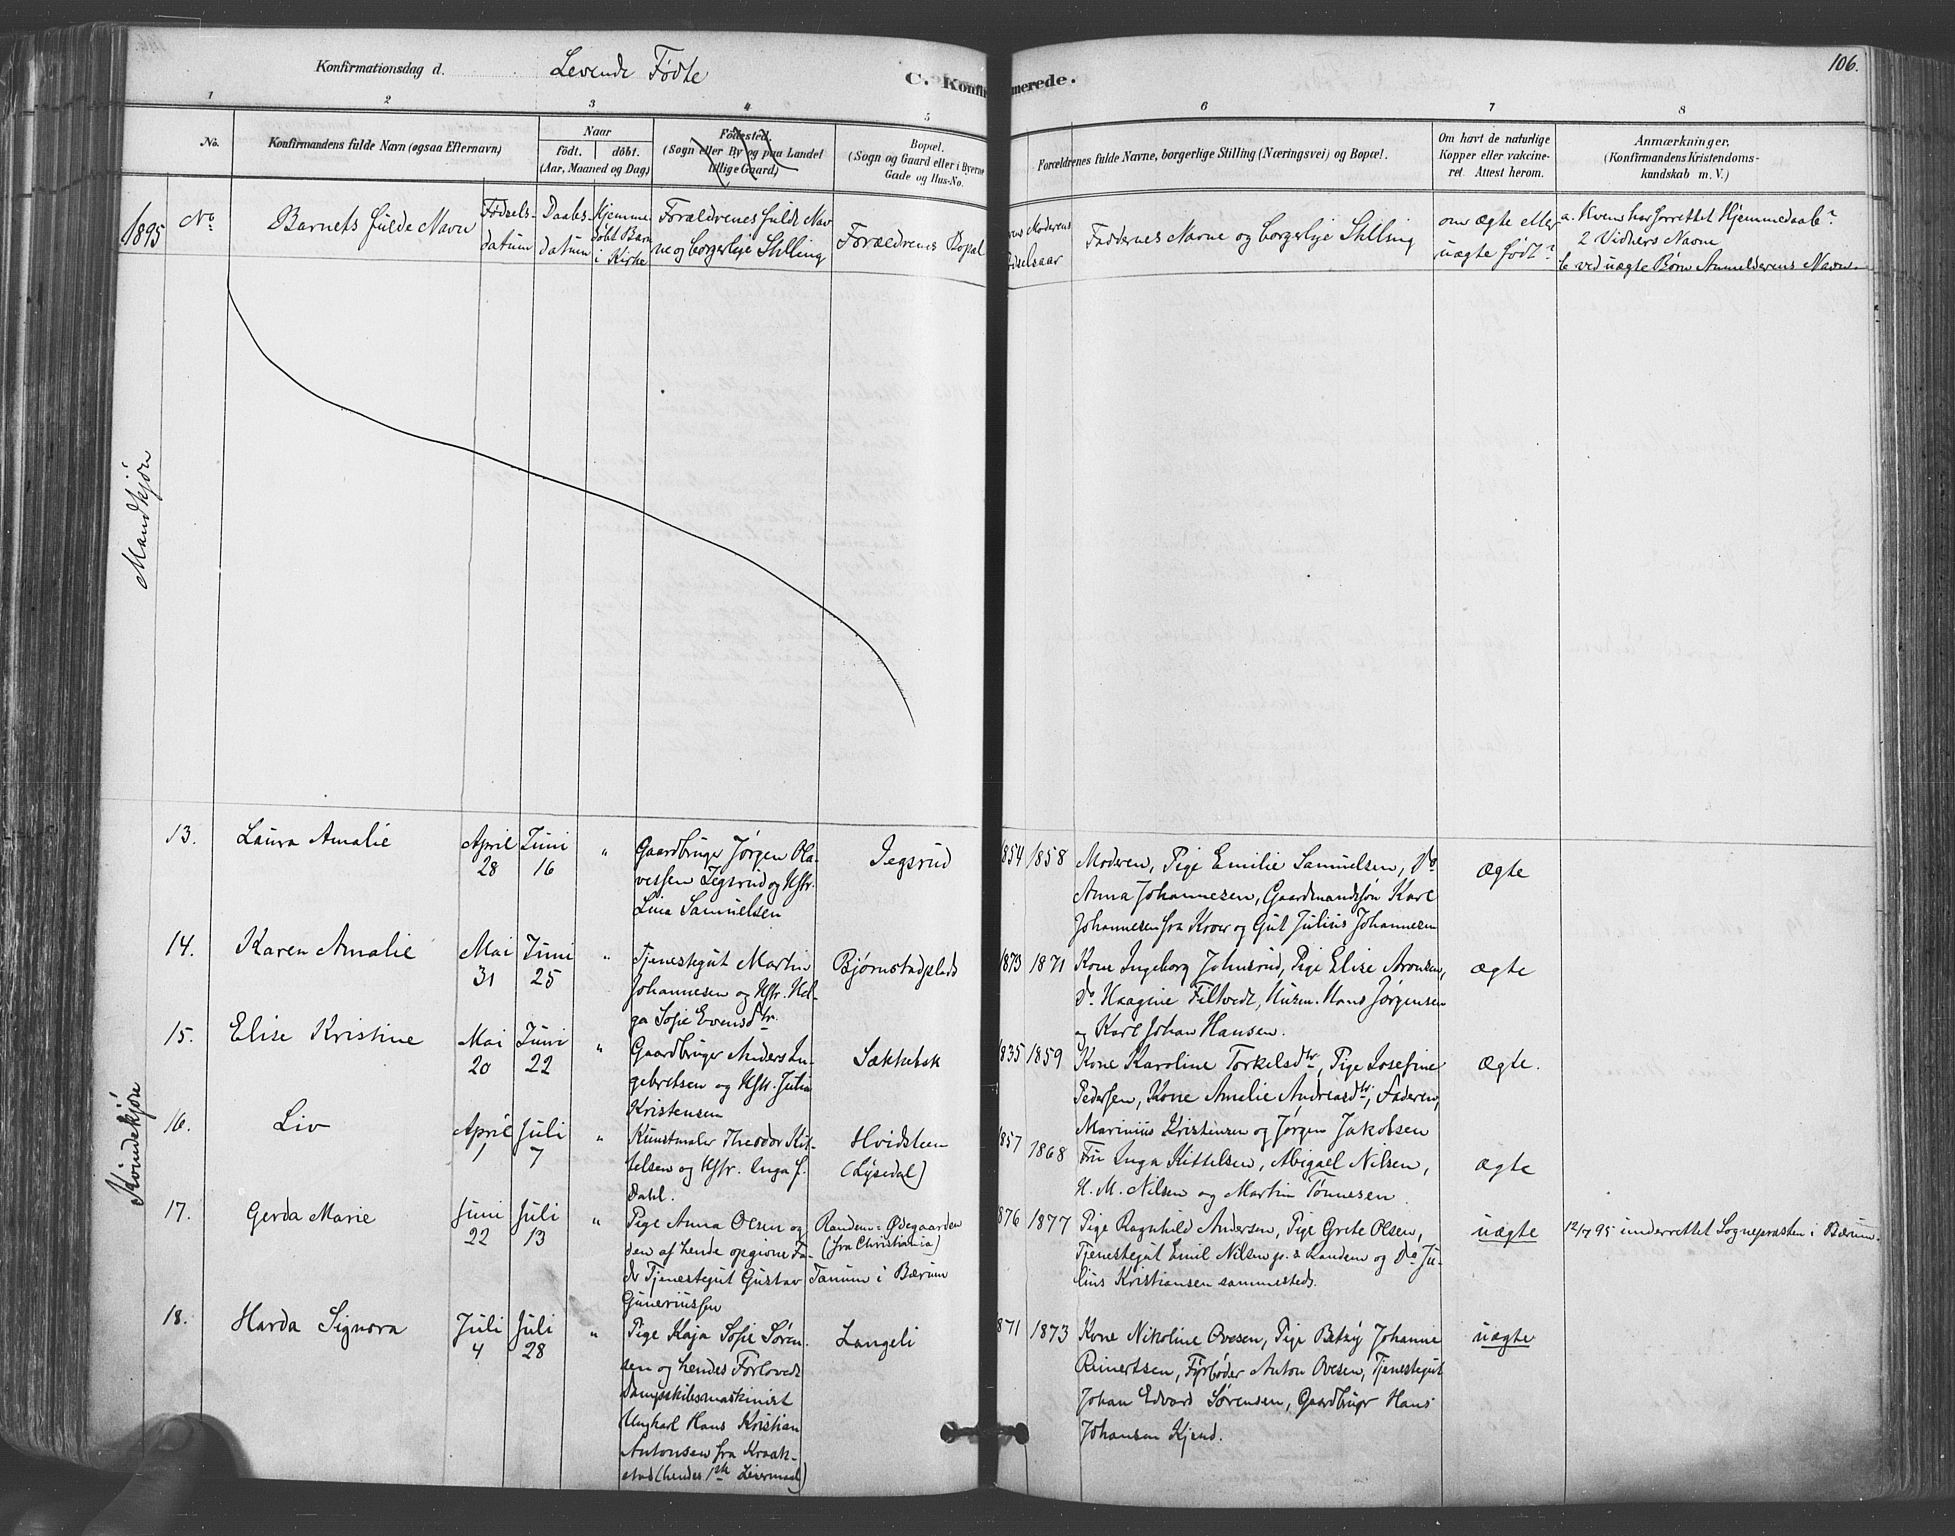 106.
Konfirmationsdag d.
Levende Fødte
C. Konfir
merede.
1 2 3 4 5 6 7 8
No.
Konfirmandens fulde Navn (ogsaa Efternavn)
Naar
født. døbt.
(Aar, Maaned og Dag)
Fødested.
(Sogn eller By og paa Landet
tillige Gaard)
Bopæl.
(Sogn og Gaard eller i Byerne
Gade og Hus-No.
Forældrenes fulde Navne, borgerlige Stilling (Næringsvei) og Bopæl.
Om havt de naturlige
Kopper eller vakcine-
ret. Attest herom.
Anmærkninger.
(Konfirmandens Kristendoms-
kundskab m. V.)
1895
No
Barnets fulde Navn
Fødsels-
datum
Daabs-
datum
Hjemme
døbt Barn
i Kirke
Forældrenes fulde Nav
ne og borgerlige Stilling
Forældrenes Bopæl
Moderens
Fødselsaar
Faddernes Navne og borgerlige Stilling
om ægte eller
uægte født?
a. Hvem har forrettet Hjemmedaab?
2 Vidners Navne
b ved uægte Børn Anmelderens Navn
Mandkjøn
Kvindekjøn
13.
Laura Amalie
April
28
Juni
16
"
Gaardbruger Jørgen Ola-
vessen Jegsrud og Hstr.
Lina Samuelsen
Jegsrud
1854 1858
Moderen, Pige Emilie Samuelsen, Do
Anna Johannesen, Gaardmandssøn Karl
Johannesen fra Kroer og Gut Julius Johannesen
ægte
14.
Karen Amalie
Mai
31
Juni
25
"
Tjenestegut Martin
Johannesen og Hstr. Hel-
ga Sofie Evensdtr.
Bjørnstadplads
1873 1871
Kone Ingeborg Johnsrud, Pige Elise Aronsen,
Do. Haagine Filtvedt, Husm. Hans Jørgensen
og Karl Johan Hansen.
ægte
15.
Elise Kristine
Mai
20
Juni
22
"
Gaardbruger Anders In-
gebretsen og Hstr. Julia
Kristensen
Sækkebæk
1835 1859
Kone Karoline Torkelsdtr, Pige Josefine
Pedersen, Kone Amelie Andreasdtr, Faderen,
Marinius Kristensen og Jørgen Jakobsen
ægte.
16.
Liv
April
1
Juli
7
"
Kunstmaler Theodor Kit-
telsen og Hstr. Inga f.
Dahl.
Hvidsteen
(Lysedal)
1857 1868
Fru Inga Kittelsen, Abigael Nilsen,
H. M. Nilsen og Martin Tønnesen
ægte
17.
Gerda Marie
Juni
22
Juli
13
"
Pige Anna Olsen og
den af hende opgivne Fa-
der Tjenestegut Gustav
Gunerius sen
Randem=Ødegaarden
(fra Christiania)
Tanum i Bærum
1876 1877
Pige Ragnhild Andersen, Pige Grete Olsen,
Tjenestegut Emil Nilsen p. s Randem og Do Ju-
lius Kristiansen sammesteds.
uægte
12/7 95 underrettet Sognepræsten i Bærum.
18.
Harda Signora
Juli
4
Juli
28
"
Pige Kaja Sofie Søren-
sen og hendes Forlovede
Dampskibsmaskinist
Ungkarl Hans Kristian
Antonsen fra Kraak-
stad (hendes 1ste Leiermaal)
Langeli
1871 1873
Kone Nikoline Ovesen, Pige Betzy Johanne
Reinertsen, Fyrbøder Anton Ovesen, Tjenestegut
Johan Edvard Sørensen, Gaardbruger Hans
Johansen Kjend.
uægte